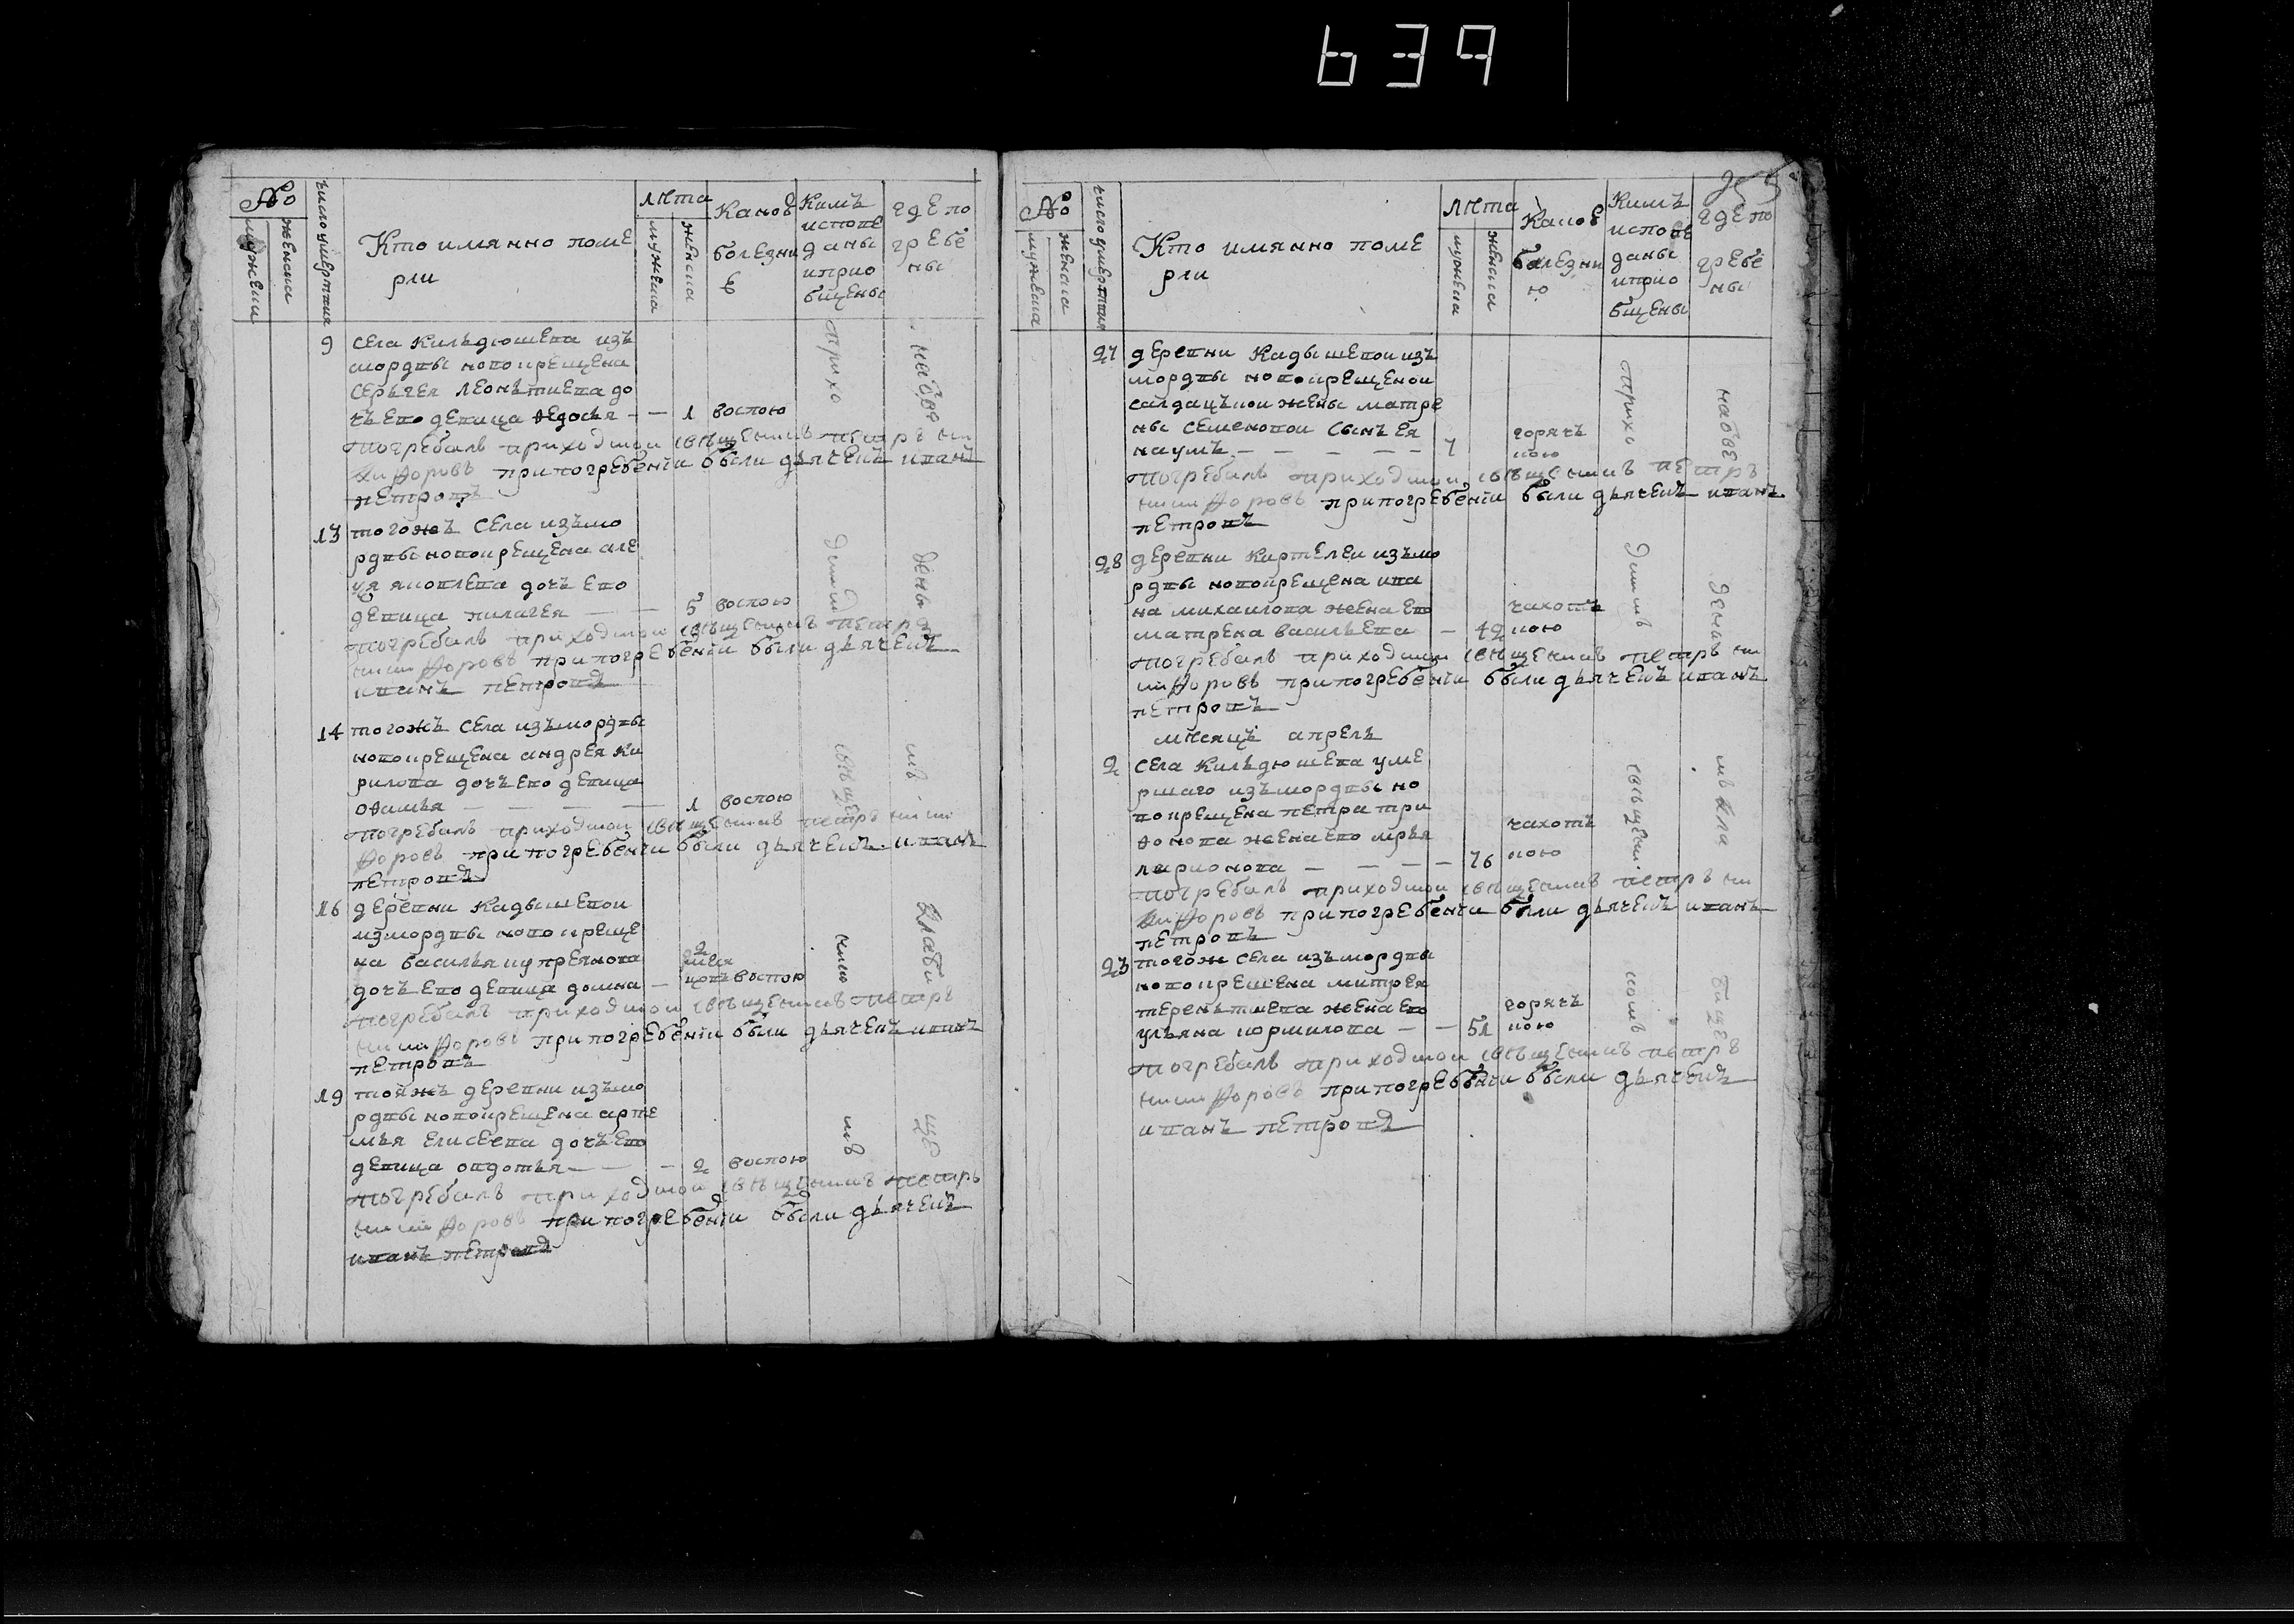 639
№
мужеска
женска
число умертвия
Кто имянно поме
рли
лѣта
мужеска
женска
Каков
болезни
ю
Кимъ
испове
даны
и прио
бщены
где по
гребе
ны
9 села Кильдюшева изъ
мордвы новокрещена
Сергея леонтиева до
чъ ево девица ѳедосья — — 1 воспою
погребалъ приходской священникъ петръ ни
кифоровъ при погребении были дьячекъ иванъ
петровъ
13 тогожъ села изъ мо
рдвы новокрещена але
ѯѣя яковлева дочъ ево
девица пилагея — — 5 воспою
погребалъ приходской священникъ петръ
никифоровъ при погребении были дьячекъ
иванъ петровъ
14 тогожъ села изъ мордвы
новокрещена андрея Ки
рилова дочъ ево девица
офимья — — — — 1 воспою
погребалъ приходской священникъ петръ ники
форовъ при погребении были дьячекъ иванъ
петровъ
16 деревни Кадышевои
из мордвы новокреще
на василья купреянова
дочъ ево девица домна — 2 воспою
погребалъ приходской священникъ петръ
никифоровъ при погребении были дьячекъ иванъ
петровъ
19 тойжъ деревни изъ мо
рдвы новокрещена арте
мья елисеева дочъ ево
девица овдотья — — — 2 воспою
погребалъ приходской священникъ петръ
никифоровъ при погребении были дьячекъ
иванъ петровъ
прихо
дским
священ
нико
мъ
на бъве
дены
мъ
кладби
ще
№
мужеска
женска
число умертвия
Кто имянно поме
рли
лѣта
мужеска
женска
Какое
болезни
ю
Кимъ
испове
даны
и прио
бщены
где по
гребе
ны
27 деревни Кадышевои изъ
мордвы новокрещенои
салдацкои жены матре
ны семеновои сынъ ея
наумъ — — — — — 7 горячь
кою
погребалъ приходской священникъ петръ
никифоровъ при погребении были дьячекъ иванъ
петровъ
28 деревни Киртелеи изъ мо
рдвы новокрещена ива
на михаилова жена ево
матрена васильева — 42 чахотъ
кою
погребалъ приходской священникъ петръ ни
кифоровъ при погребении были дьячекъ иванъ
петровъ
мѣсяцъ апрель
2 села Кильдюшева уме
ршаго изъ мордвы но
вокрещена петра три
фонова жена ево мрья
ларионова — — — — 76 чахотъ
кою
погребалъ приходской священникъ петръ ни
кифоровъ при погребении были дьячекъ иванъ
петровъ
23 тогож села изъ мордвы
новокрещена митрея
терентиева жена ево
ульяна коршилова — — 51 горячь
кою
погребалъ приходской священникъ петръ
никифоровъ при погребении были дьячекъ
иванъ петровъ
прихо
дскимъ
священ
комъ
на отве
деном
мъ кла
бище